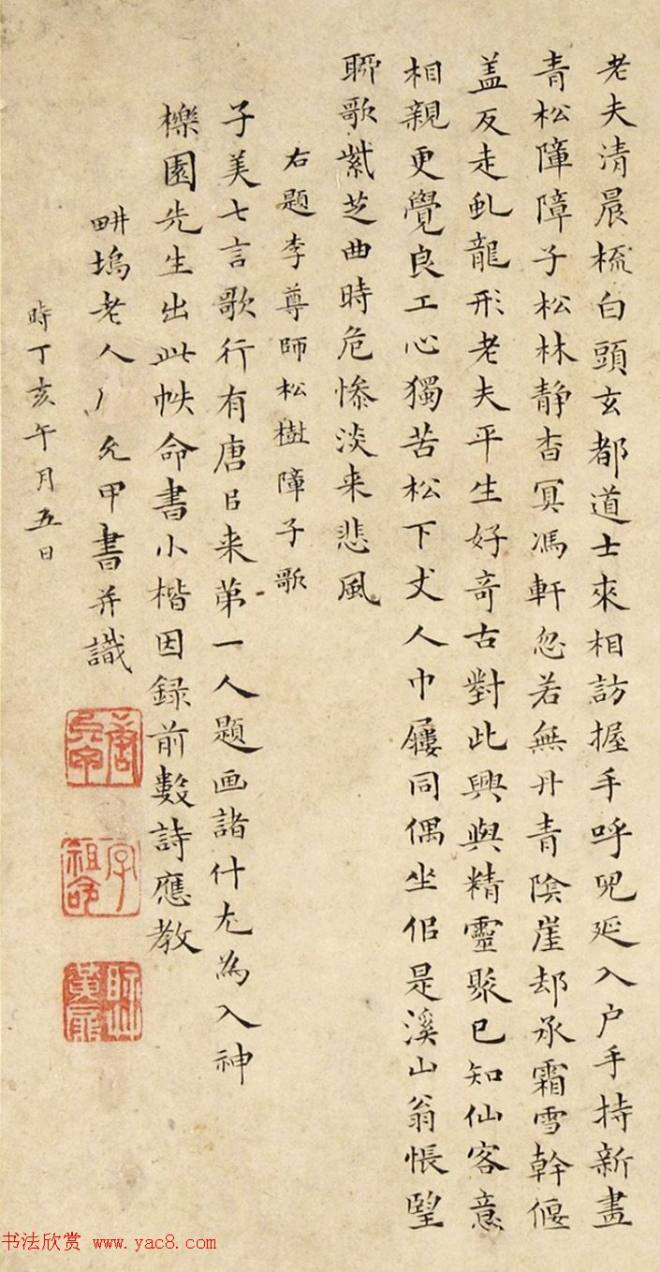 老夫清晨梳白頭玄都道士來相訪握手呼兒延入户手持新畫
青松障障子松林静杳冥馮軒忽若無丹青陰崖却承霜雪幹偃
盖反走虬龍形老夫平生好竒古對此興與精靈聚已知仙客意
相親更覺良工心獨苦松下丈人巾屨同偶坐佀是溪山翁悵望
聊歌紫芝曲時危惨淡来悲風
右題李尊師松樹障子歌
子美七言歌行有唐㠯来苐一人題画諸什尤為入神
櫟園先生出此帙命書小楷因録前數詩應教
畊塢老人允甲書并識
時丁亥午月五日
唐允甲
字祖命
书法欣赏 www.yac8.com